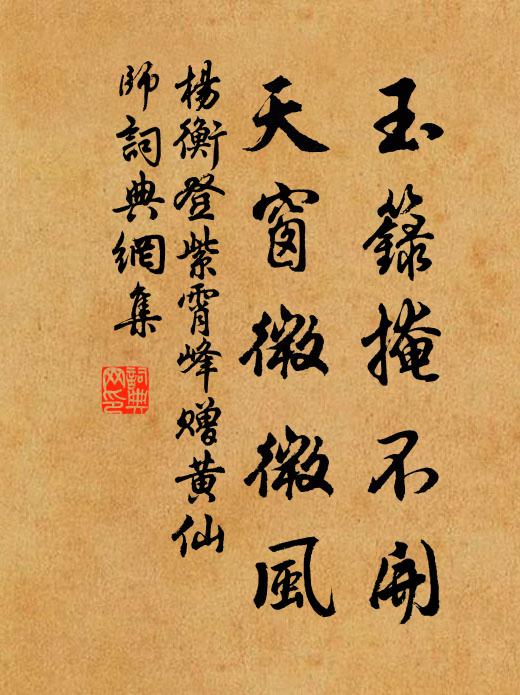 玉籙掩不開
天窗微微風
楊衡登紫霄峰贈黃仙
師詞典網集
詞典
网印